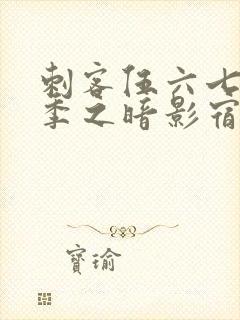 刺客伍六七
季之暗影宿
寳瑜